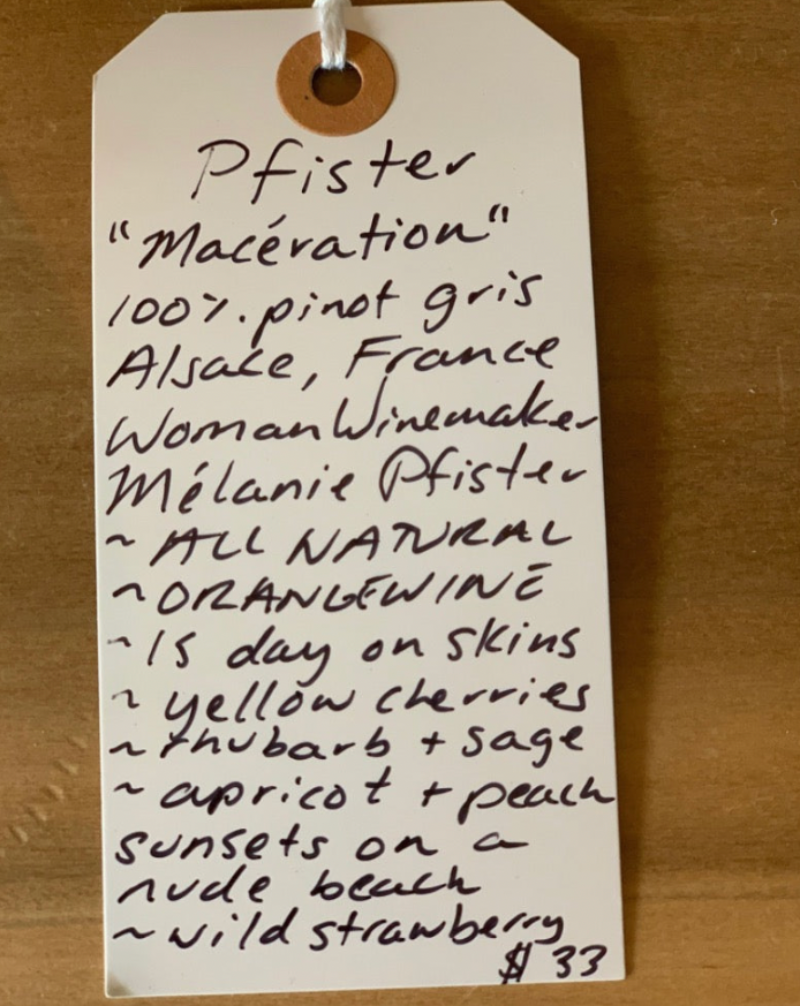 Pfister
"Macération"
100%. pinot gris
Alsace, France
Woman Winemaker
Mélanie Pfister
~ ALL NATURAL
~ ORANGEWINE
~ 15 day on skins
~ yellow cherries
~ rhubarb + sage
~ apricot + peach
sunsets on a
nude beach
~ wild strawberry
$ 33